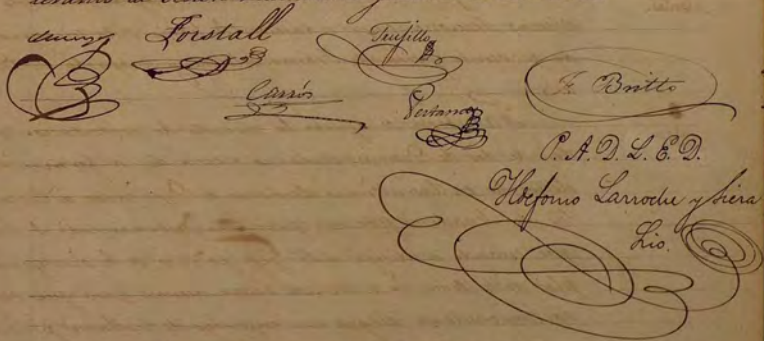 Forstall Trujillo
Carrós Pestana F. Britto
P. A. D. L. E. D.
Ildefonso Larroche y Siera
Srio.